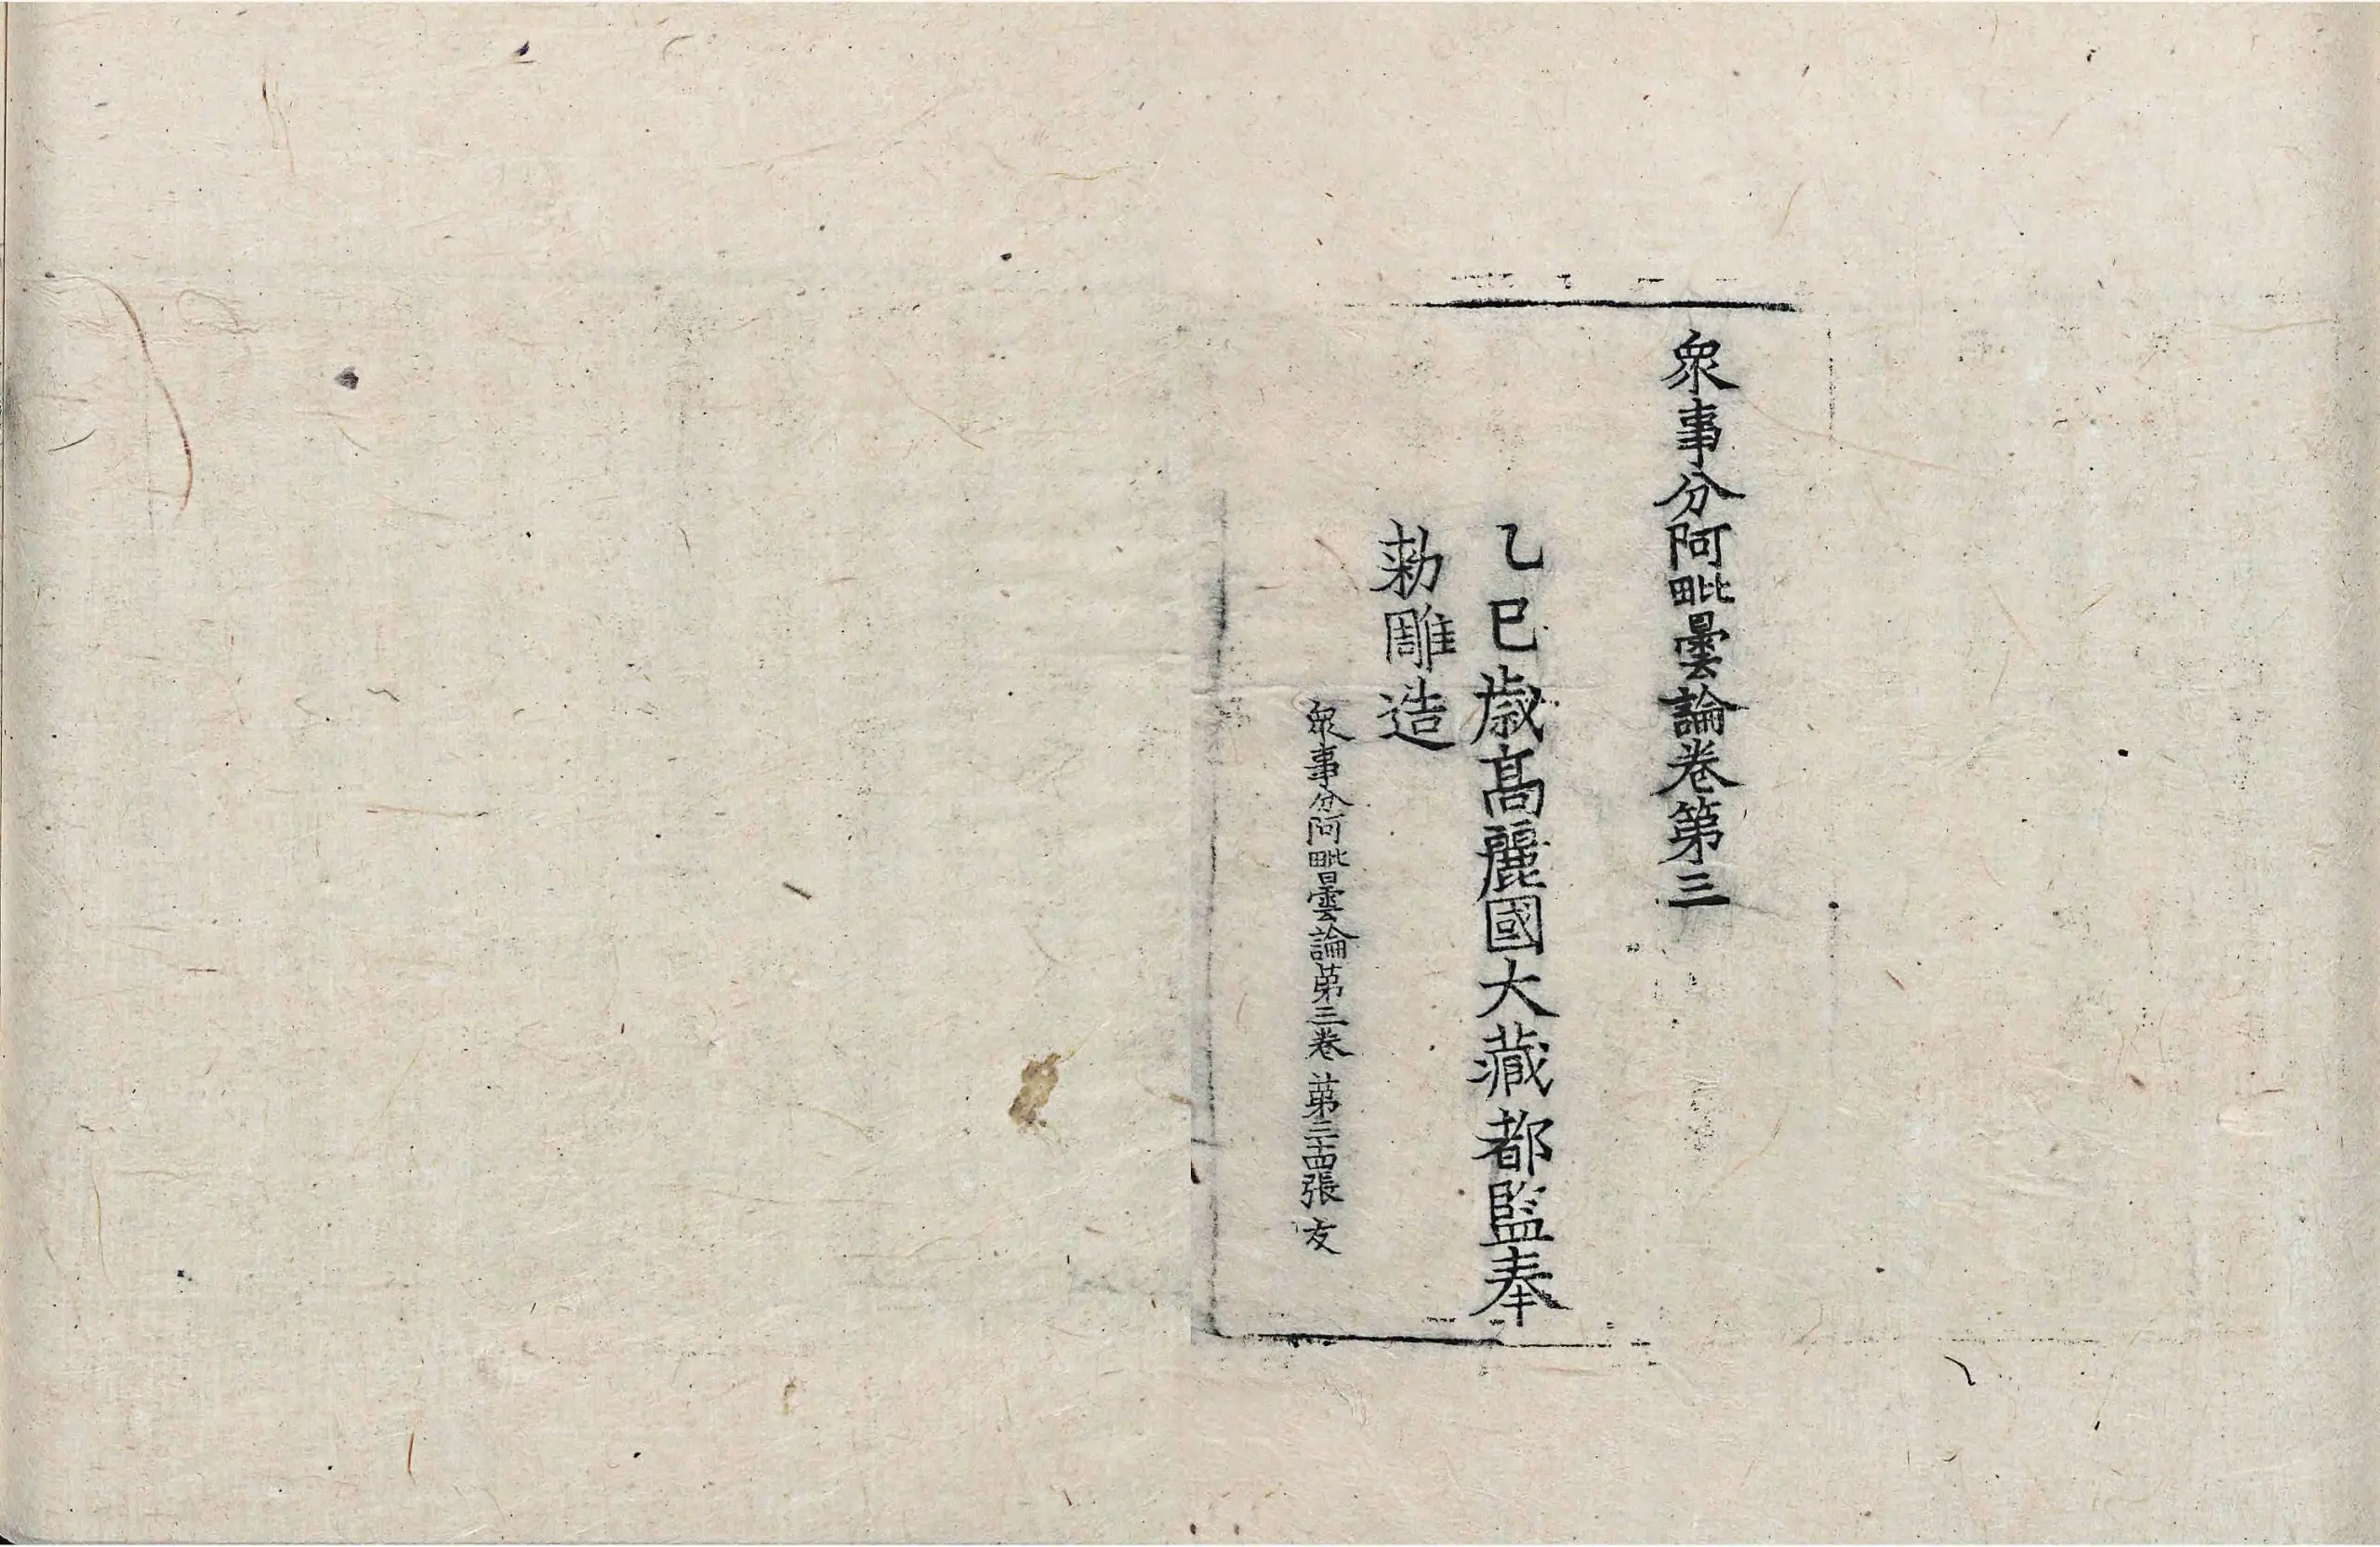 衆事分阿毗曇論卷第三
乙巳歲高麗國大藏都監奉
勅雕造
衆事分阿毗曇論第三卷 第二十四張 友